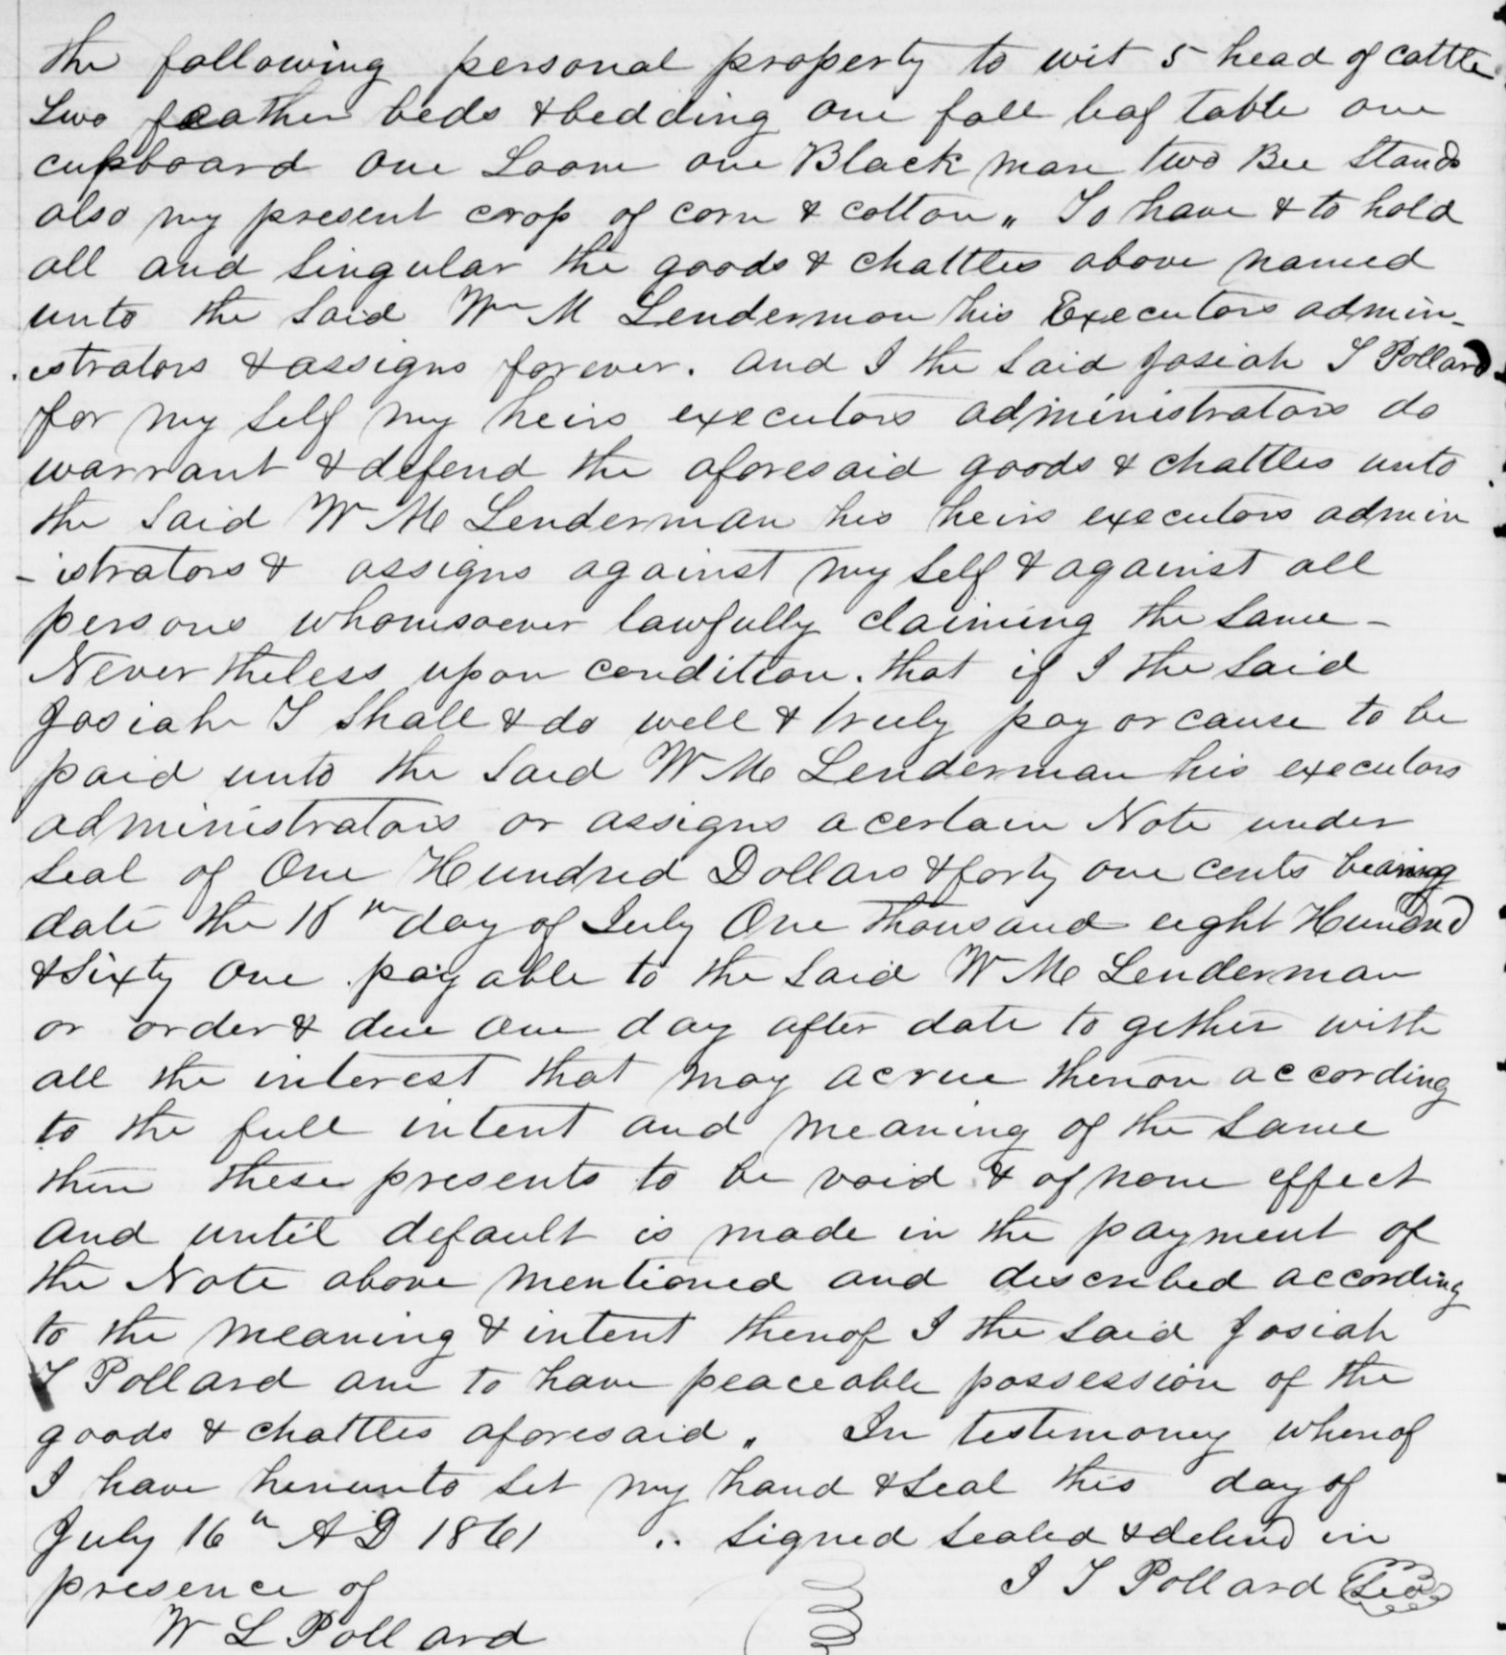 the following personal property to wit 5 head of cattle
two feather beds & bedding one fall leaf table one
cupboard one Loom one Black mare two Bee Stands
also my present crop of corn & cotton „ To have & to hold
all and singular the goods & chattles above named
unto the said Wm M Lenderman his Executors admin-
.istrators & assigns forever. and I the said Josiah T Pollard
for my self my heirs executors administrators do
warrant & defend the aforesaid goods & chattles unto
the said W M Lenderman his heirs executors admin
-istrators & assigns against my self & against all
persons whomsoever lawfully claiming the same -
Never theless upon condition. that if I the said
Josiah T shall & do well & truly pay or cause to be
paid unto the said W M Lenderman his executors
administrators or assigns a certain Note under
seal of One Hundred Dollars & forty one cents bearing
date the 16th day of July One thousand eight Hundred
& sixty one payable to the said W M Lenderman
or order & due one day after date to gether with
all the interest that may acrue thereon according
to the full intent and meaning of the same
then these presents to be void & of none effect
and until default is made in the payment of
the Note above mentioned and described according
to the meaning & intent thereof I the said Josiah
T Pollard am to have peaceable possession of the
goods & chattles aforesaid „ In testimony whereof
I have hereunto set my hand & seal this day of
July 16th A D 1861 .. signed sealed & deliverd in
presence of J T Pollard Seal
W L Pollard